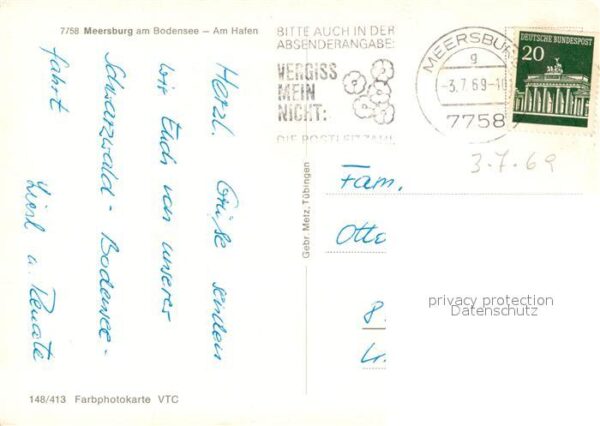 7/58 Meersburg am Bodensee – Am Hafen
Herzl. Grüße senden
wir Euch von unserer
Schwarzwald - Bodensee-
fahrt
Liesl u. Renate
148/413 Farbphotokarte VTC
Gebr. Metz, Tübingen
BITTE AUCH IN DER
ABSENDERANGABE:
VERGISS
MEIN
NICHT:
DIE POSTLEITZAHL
MEERSBURG
g
-3.7.69-10
7758
DEUTSCHE BUNDESPOST
20
3.7.69
Fam.
Otto
8
privacy protection
Datenschutz